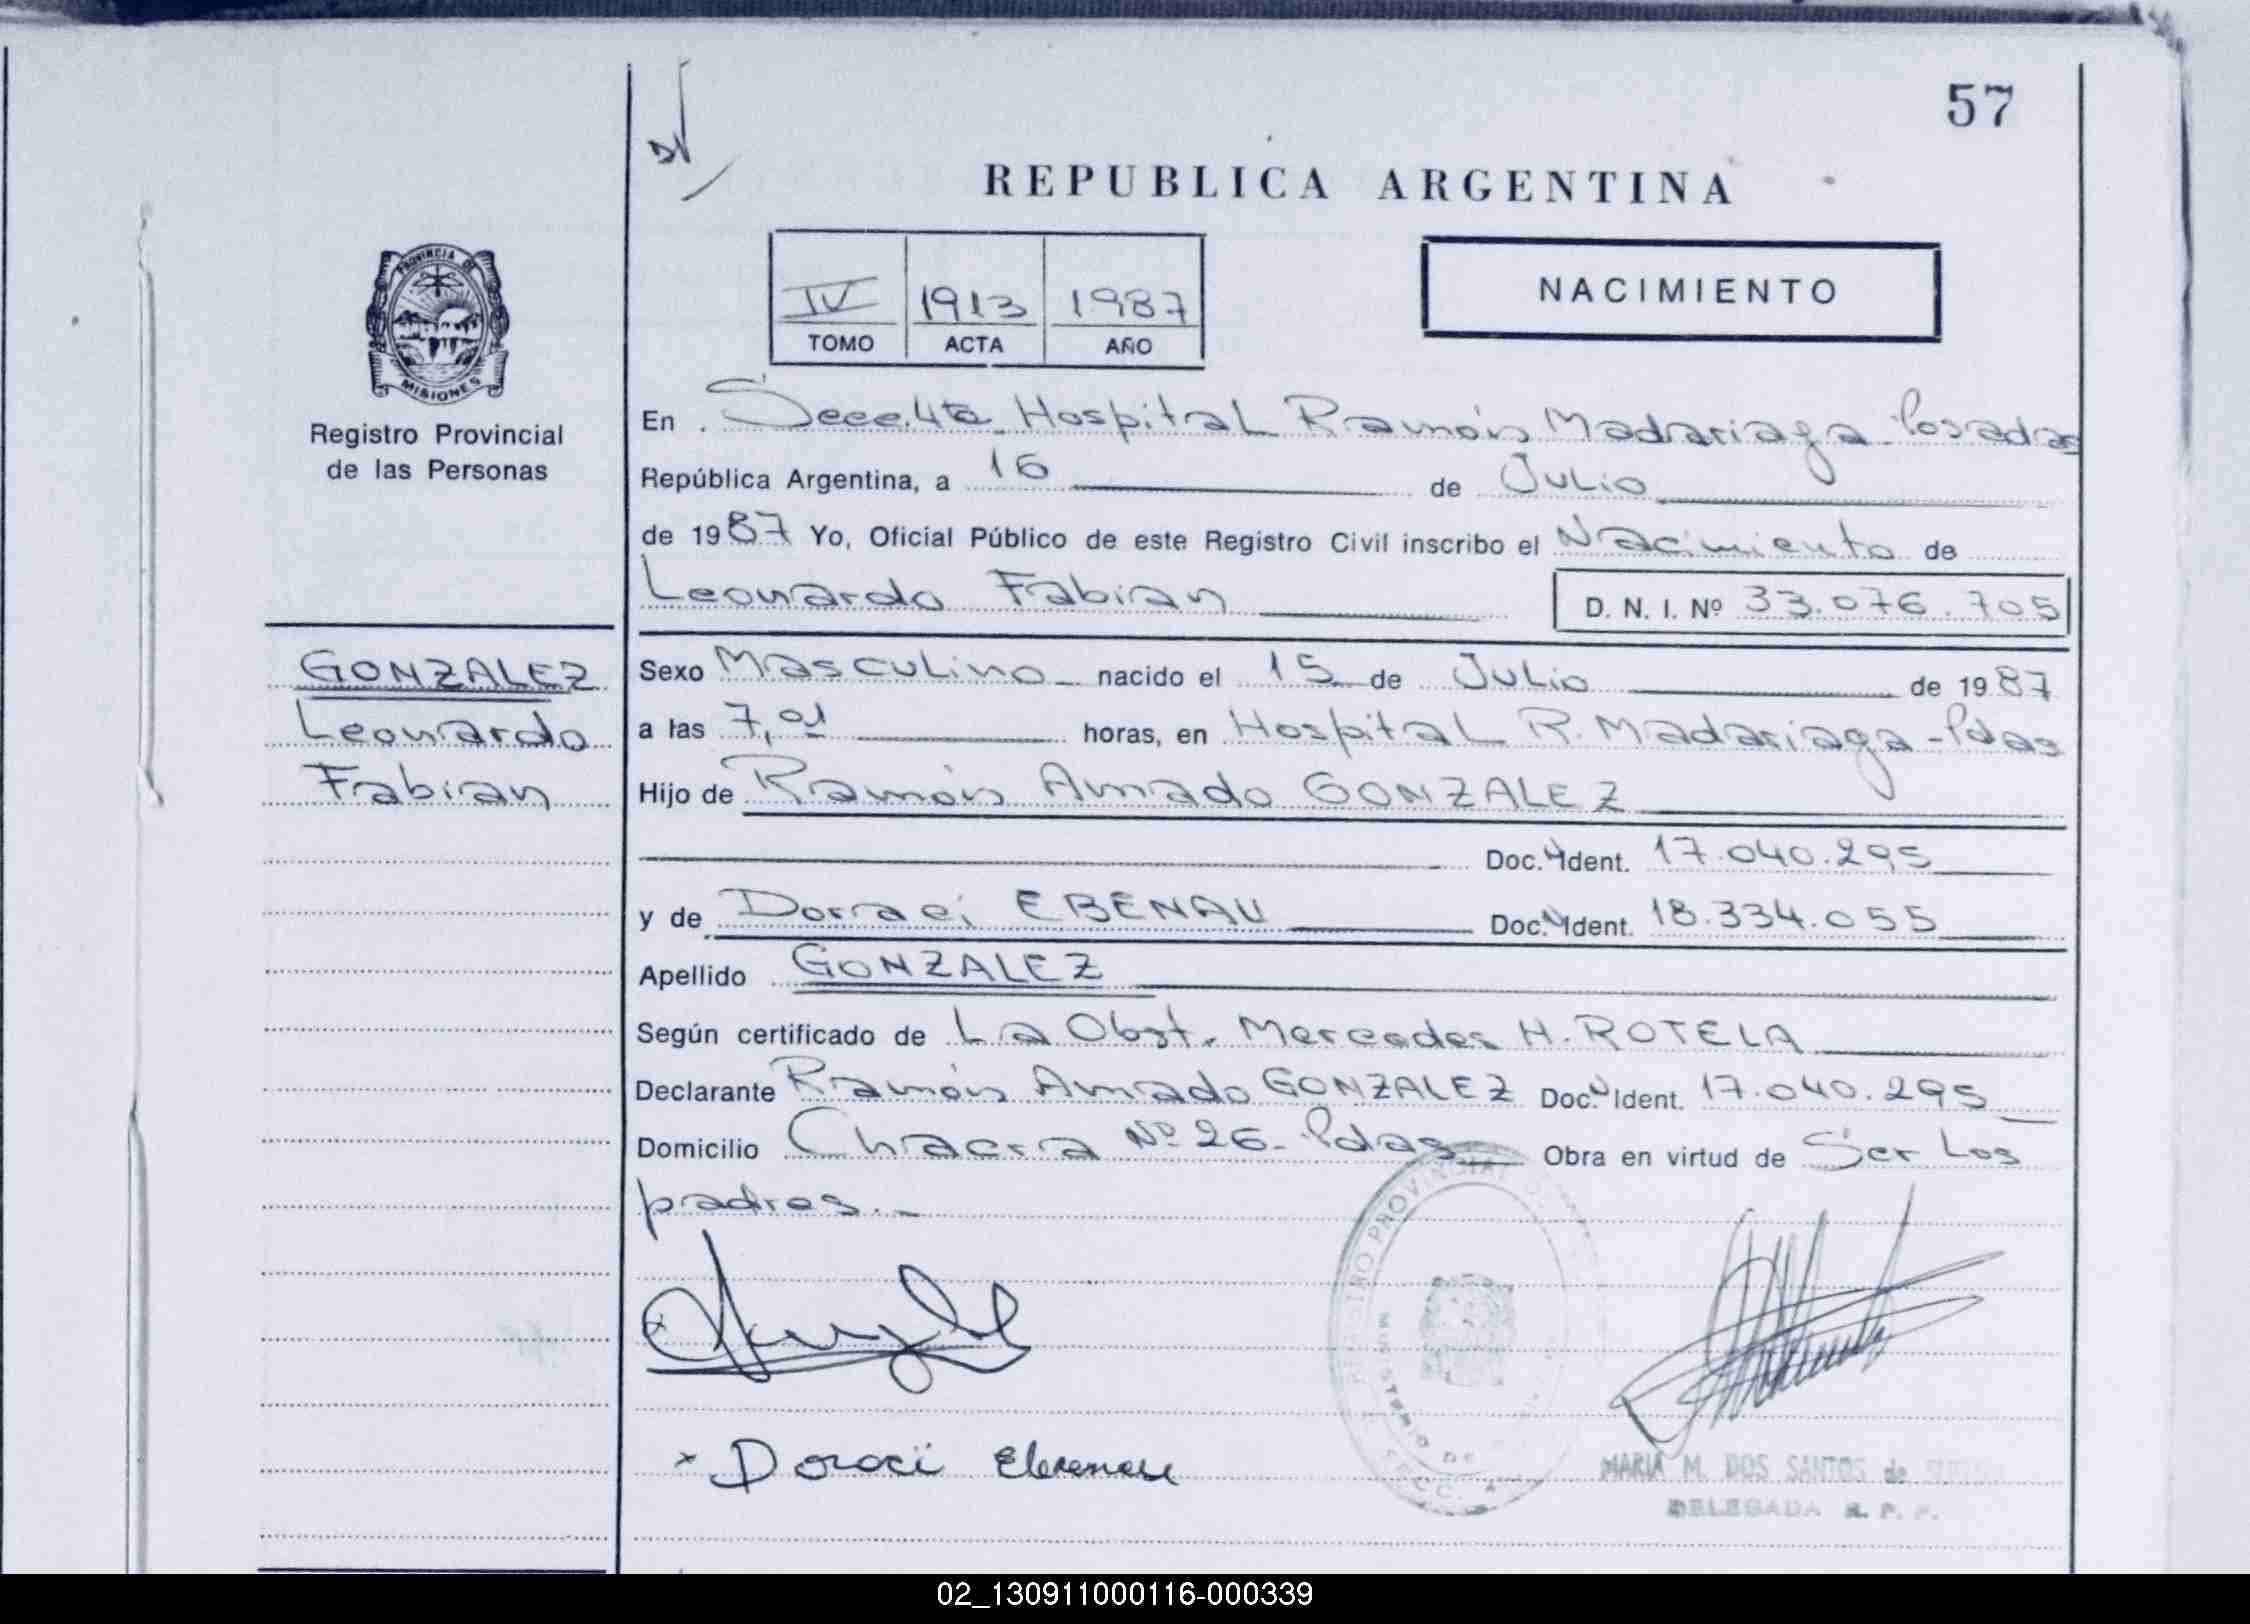 57
REPUBLICA ARGENTINA
IV 1913 1987
TOMO ACTA AÑO
NACIMIENTO
PROVINCIA DE
MISIONES
Registro Provincial
de las Personas
GONZALEZ
Leonardo
Fabian
En Secc. 4ta Hospital Ramón Madariaga - Posadas
República Argentina, a 16 de Julio
de 1987 Yo, Oficial Público de este Registro Civil inscribo el Nacimiento de
Leonardo Fabian D. N. I. Nº 33.076.705
Sexo Masculino nacido el 15 de Julio de 1987
a las 7,01 horas, en Hospital R. Madariaga - Pdas
Hijo de Ramón Amado GONZALEZ
Doc. Ident. 17.040.295
y de Doraci EBENAU Doc. Ident. 18.334.055
Apellido GONZALEZ
Según certificado de La Obst. Mercedes H. ROTELA
Declarante Ramón Amado GONZALEZ Doc. Ident. 17.040.295
Domicilio Chacra Nº 26 - Pdas Obra en virtud de Ser Los
padres.-
REGISTRO PROVINCIAL
MINISTERIO DE
SECC. 4
x Doraci Ebenau
MARIA M. DOS SANTOS de
DELEGADA R. P. P.
02_130911000116-000339